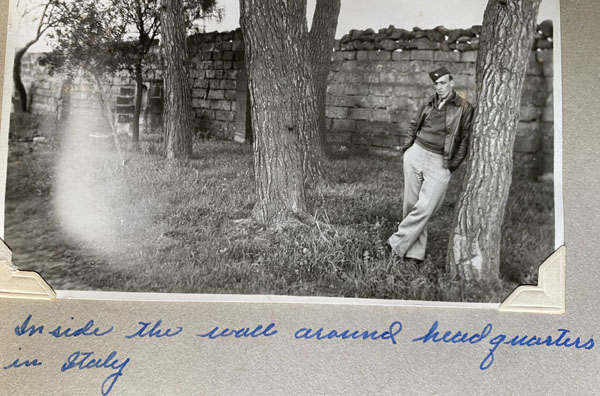 Inside the wall around headquarters
in Italy